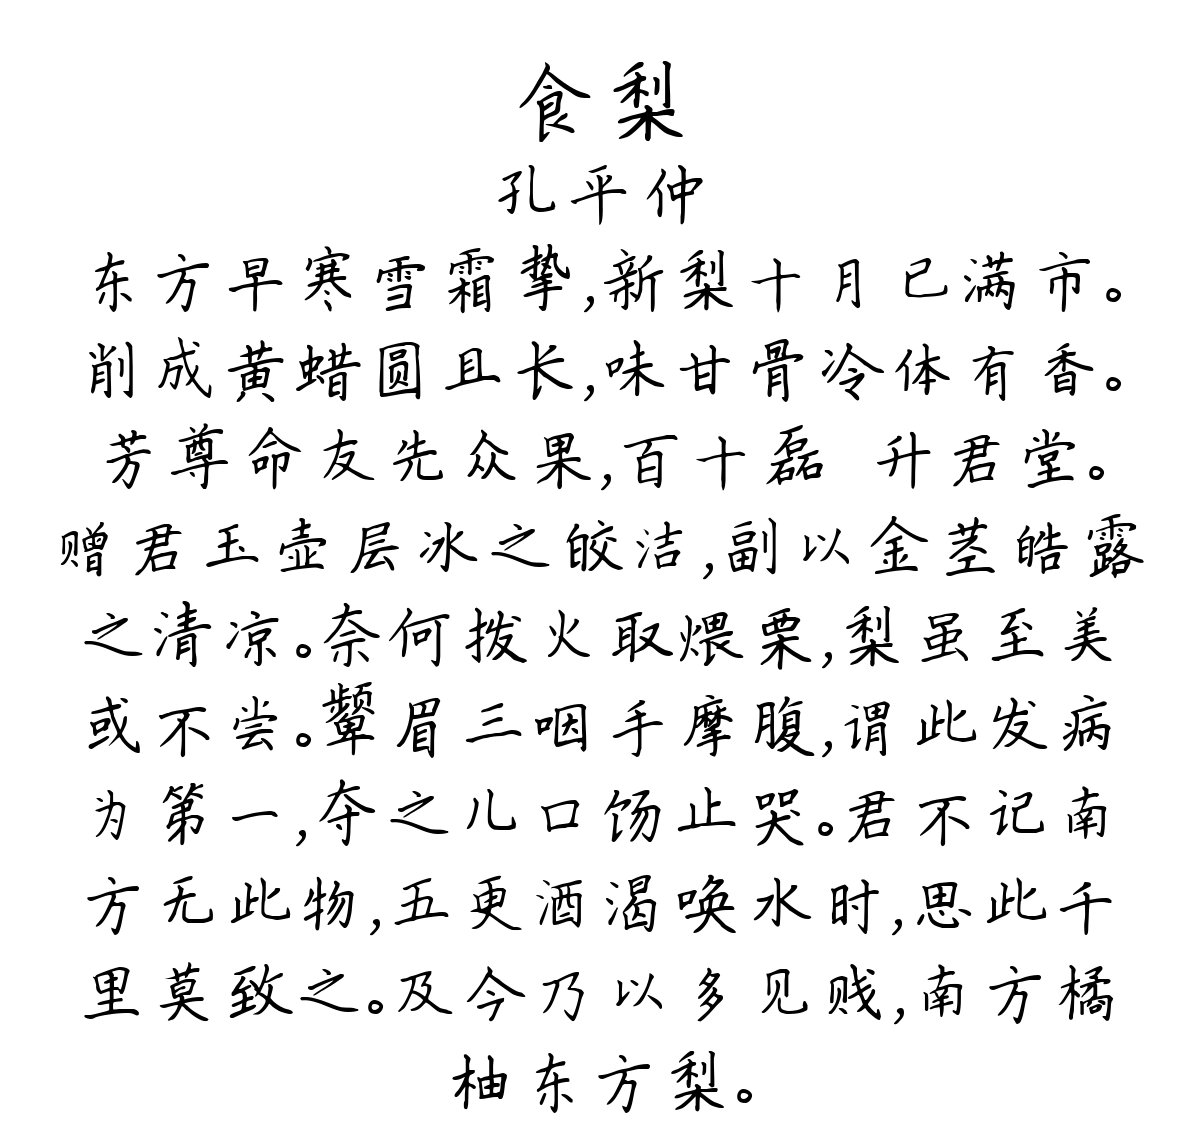 食梨
孔平仲
东方早寒雪霜挚,新梨十月已满市。
削成黄蜡圆且长,味甘骨冷体有香。
芳尊命友先众果,百十磊 升君堂。
赠君玉壶层冰之皎洁,副以金茎皓露
之清凉。奈何拨火取煨栗,梨虽至美
或不尝。颦眉三咽手摩腹,谓此发病
为第一,夺之儿口饧止哭。君不记南
方无此物,五更酒渴唤水时,思此千
里莫致之。及今乃以多见贱,南方橘
柚东方梨。